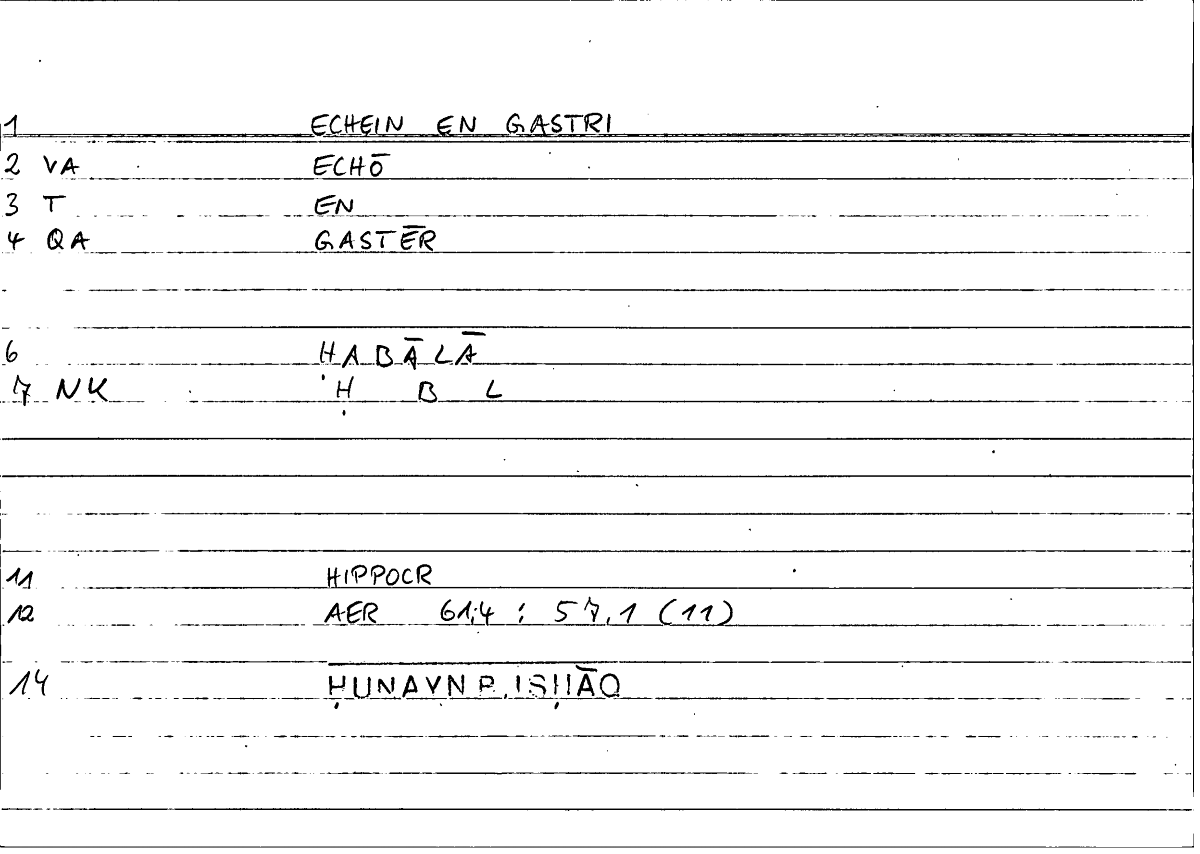 1 ECHEIN EN GASTRI
2 VA ECHŌ
3 T EN
4 QA GASTĒR
6 ḤABĀLĀ
7 NK Ḥ B L
11 HIPPOCR
12 AER 61,4 : 57,1 (11)
14 ḤUNAYN B. ISḤĀQ